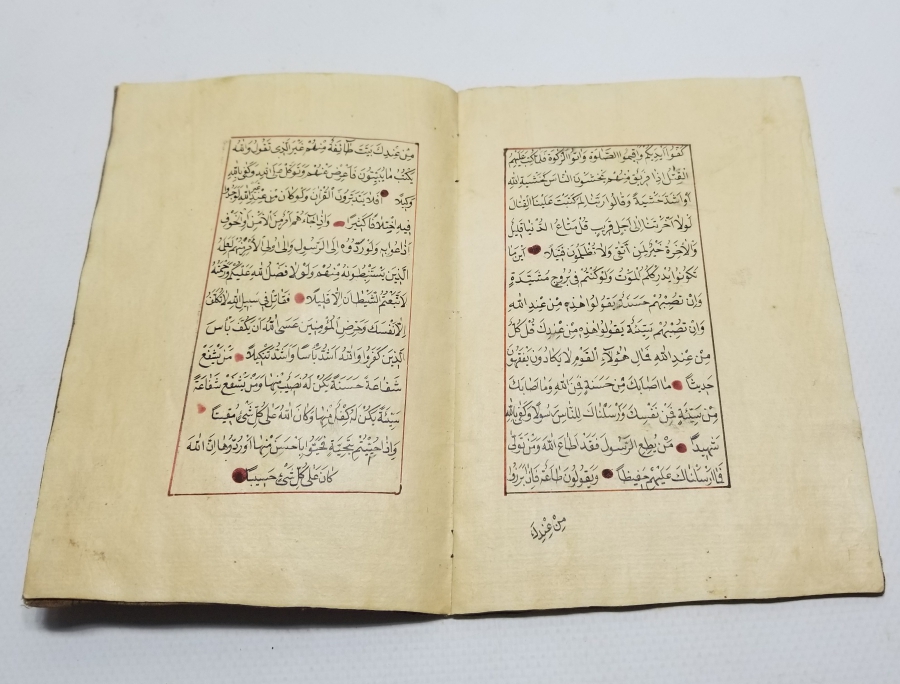 كفوا ايديكم واقيموا الصلوة واتوا الزكوة فلما كتب عليهم
القتال اذا فريق منهم يخشون الناس كخشية الله
او اشد خشية وقالوا ربنا لم كتبت علينا القتال
لولا اخرتنا الى اجل قريب قل متاع الدنيا قليل
والاخرة خير لمن اتقى ولا تظلمون فتيلا اين ما
تكونوا يدرككم الموت ولو كنتم في بروج مشيدة
وان تصبهم حسنة يقولوا هذه من عند الله
وان تصبهم سيئة يقولوا هذه من عندك قل كل
من عند الله فمال هؤلاء القوم لا يكادون يفقهون
حديثا ما اصابك من حسنة فمن الله وما اصابك
من سيئة فمن نفسك وارسلناك للناس رسولا وكفى بالله
شهيدا من يطع الرسول فقد اطاع الله ومن تولى
فما ارسلناك عليهم حفيظا ويقولون طاعة فاذا برزوا
من عندك
من عندك بيت طائفة منهم غير الذي تقول والله
يكتب ما يبيتون فاعرض عنهم وتوكل على الله وكفى بالله
وكيلا افلا يتدبرون القران ولو كان من عند غير الله لوجدوا
فيه اختلافا كثيرا واذا جاءهم امر من الامن او الخوف
اذاعوا به ولو ردوه الى الرسول والى اولي الامر منهم لعلمه
الذين يستنبطونه منهم ولولا فضل الله عليكم ورحمته
لاتبعتم الشيطان الا قليلا فقاتل في سبيل الله لا تكلف
الا نفسك وحرض المؤمنين عسى الله ان يكف باس
الذين كفروا والله اشد باسا واشد تنكيلا من يشفع
شفاعة حسنة يكن له نصيب منها ومن يشفع شفاعة
سيئة يكن له كفل منها وكان الله على كل شيء مقيتا
واذا حييتم بتحية فحيوا باحسن منها او ردوها ان الله
كان على كل شيء حسيبا